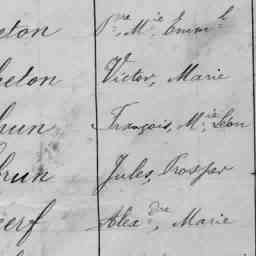 eton Pre, Mie Emml
elon Victor, Marie
hun François, Mie Léon
run Jules, Prosper
erf Alexdre, Marie